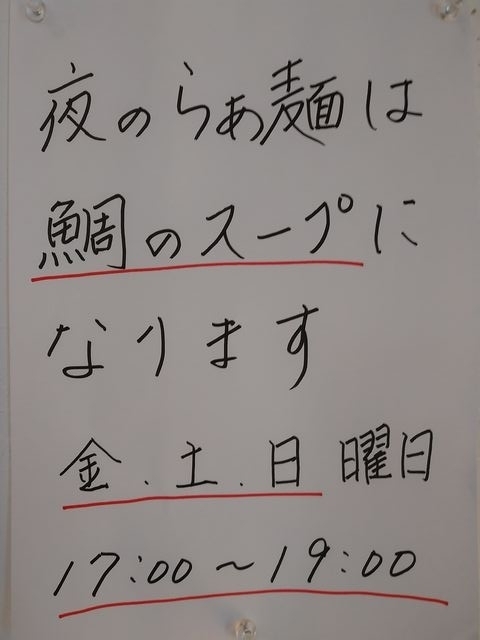 夜のらぁ麺は
鯛のスープに
なります
金.土.日 曜日
17:00～19:00